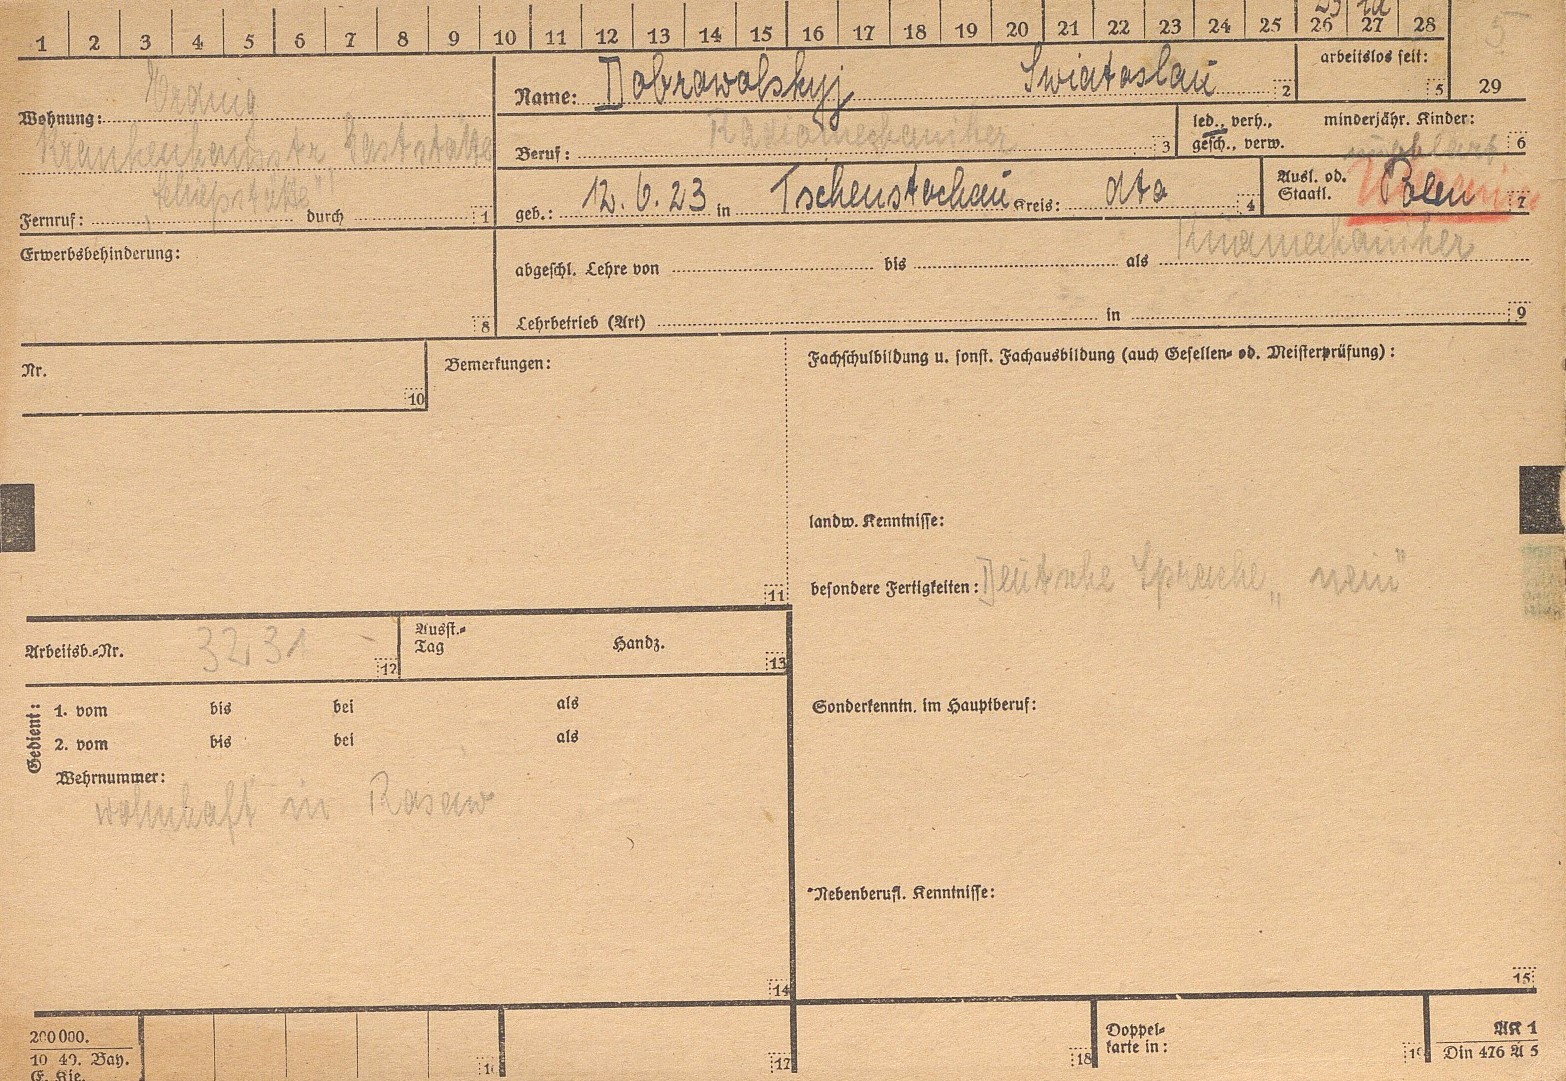 1 2 3 4 5 6 7 8 9 10 11 12 13 14 15 16 17 18 19 20 21 22 23 24 25 26 27 28
5
Wohnung: Erding
Krankenhausstr Gaststätte
Fernruf: durch 1
Name: Dobrowolskyj Swiatoslau 2
arbeitslos seit: 5 29
Beruf: Radiomechaniker 3
led., verh., gesch., verw.
minderjähr. Kinder: 6
geb.: 12. 6. 23 in Tschenstochau Kreis: dto 4
Ausl. od. Staatl. ungeklärt Polen 7
Erwerbsbehinderung: 8
abgeschl. Lehre von bis als Kinomechaniker
Lehrbetrieb (Art) in 9
Nr. 10
Bemerkungen: 11
Fachschulbildung u. sonst. Fachausbildung (auch Gesellen- od. Meisterprüfung):
landw. Kenntnisse:
besondere Fertigkeiten: Deutsche Sprache „nein"
Arbeitsb.-Nr. 3231 12
Ausst.-Tag Handz. 13
Gedient:
1. vom bis bei als
2. vom bis bei als
Wehrnummer:
wohnhaft in
14
Sonderkenntn. im Hauptberuf:
Nebenberufl. Kenntnisse:
15
200 000.
10 40. Bay.
16 17 18
Doppel-
karte in: 19
AK 1
Din 476 A 5